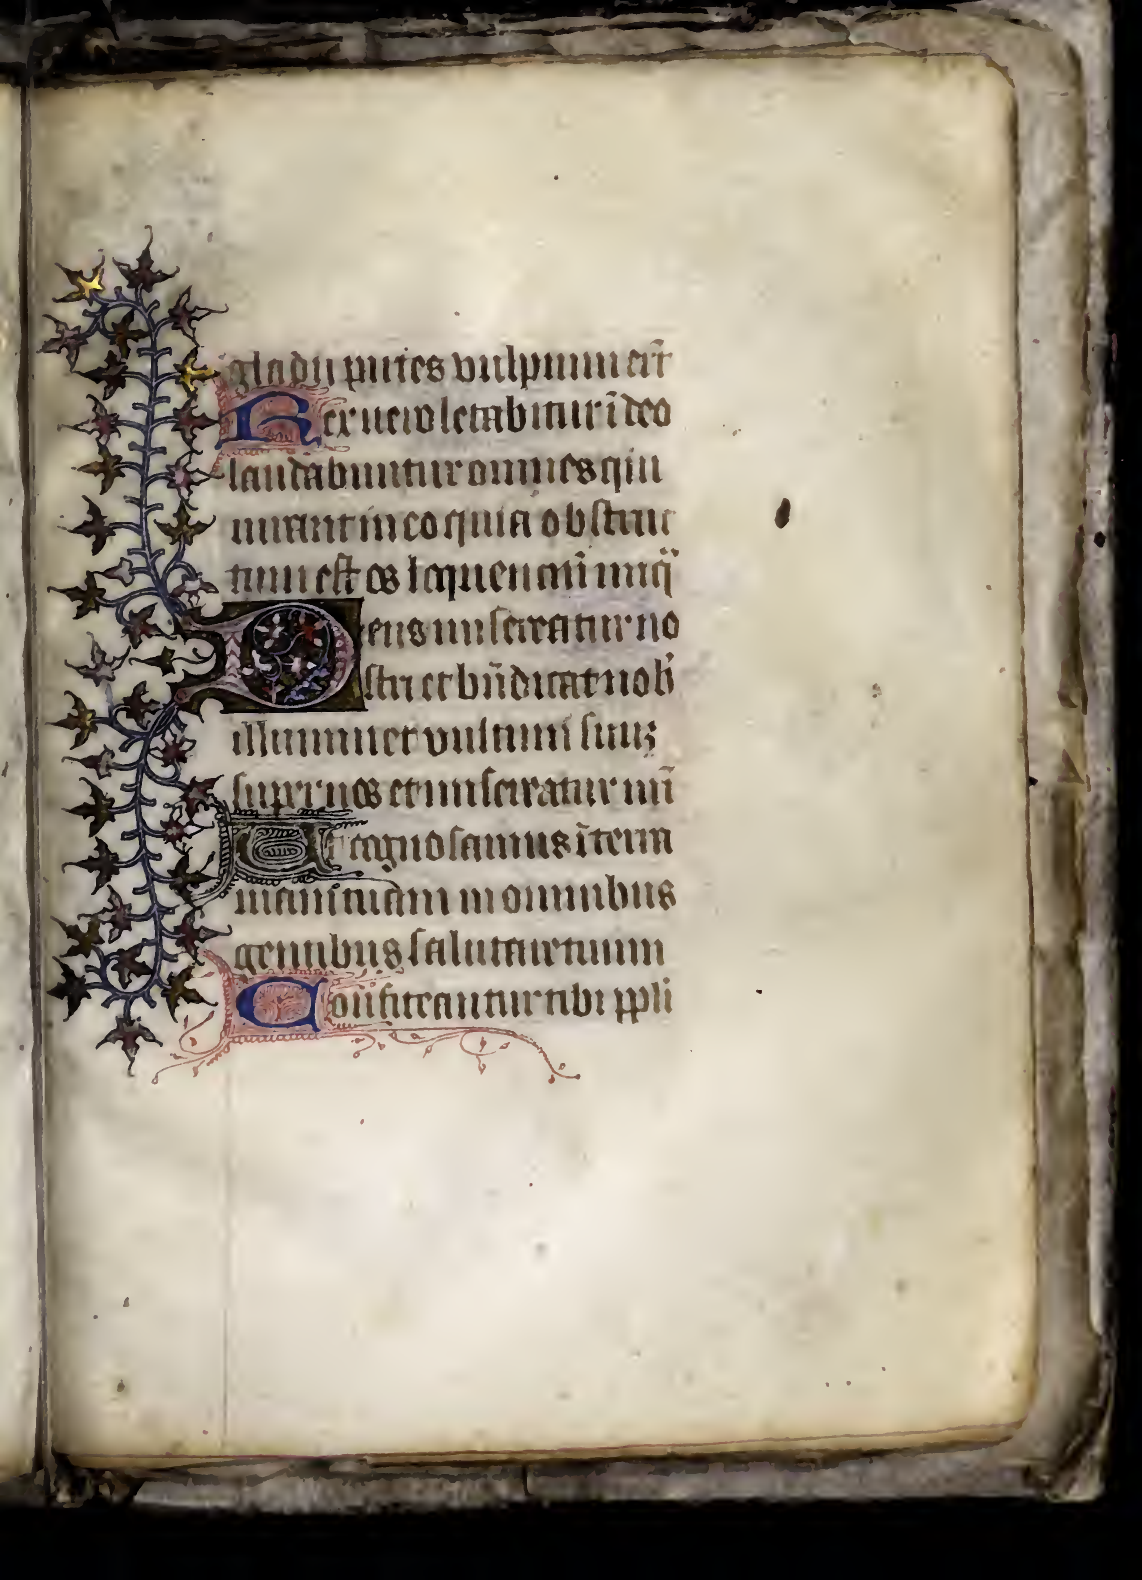 gladii partes vulpium erūt
Rex uero letabitur ī deo
laudabuntur omnes qui
iurant in eo quia obstruc
tum est os loquenciū iniq̄
Deus misereatur no
stri et bn̄dicat nob̄
illuminet vultum suuʒ
super nos et misereatur nr̄i
Ut cognoscamus ī terra
uiam tuam in omnibus
gentibus salutare tuum
Confiteantur tibi ppl̄i